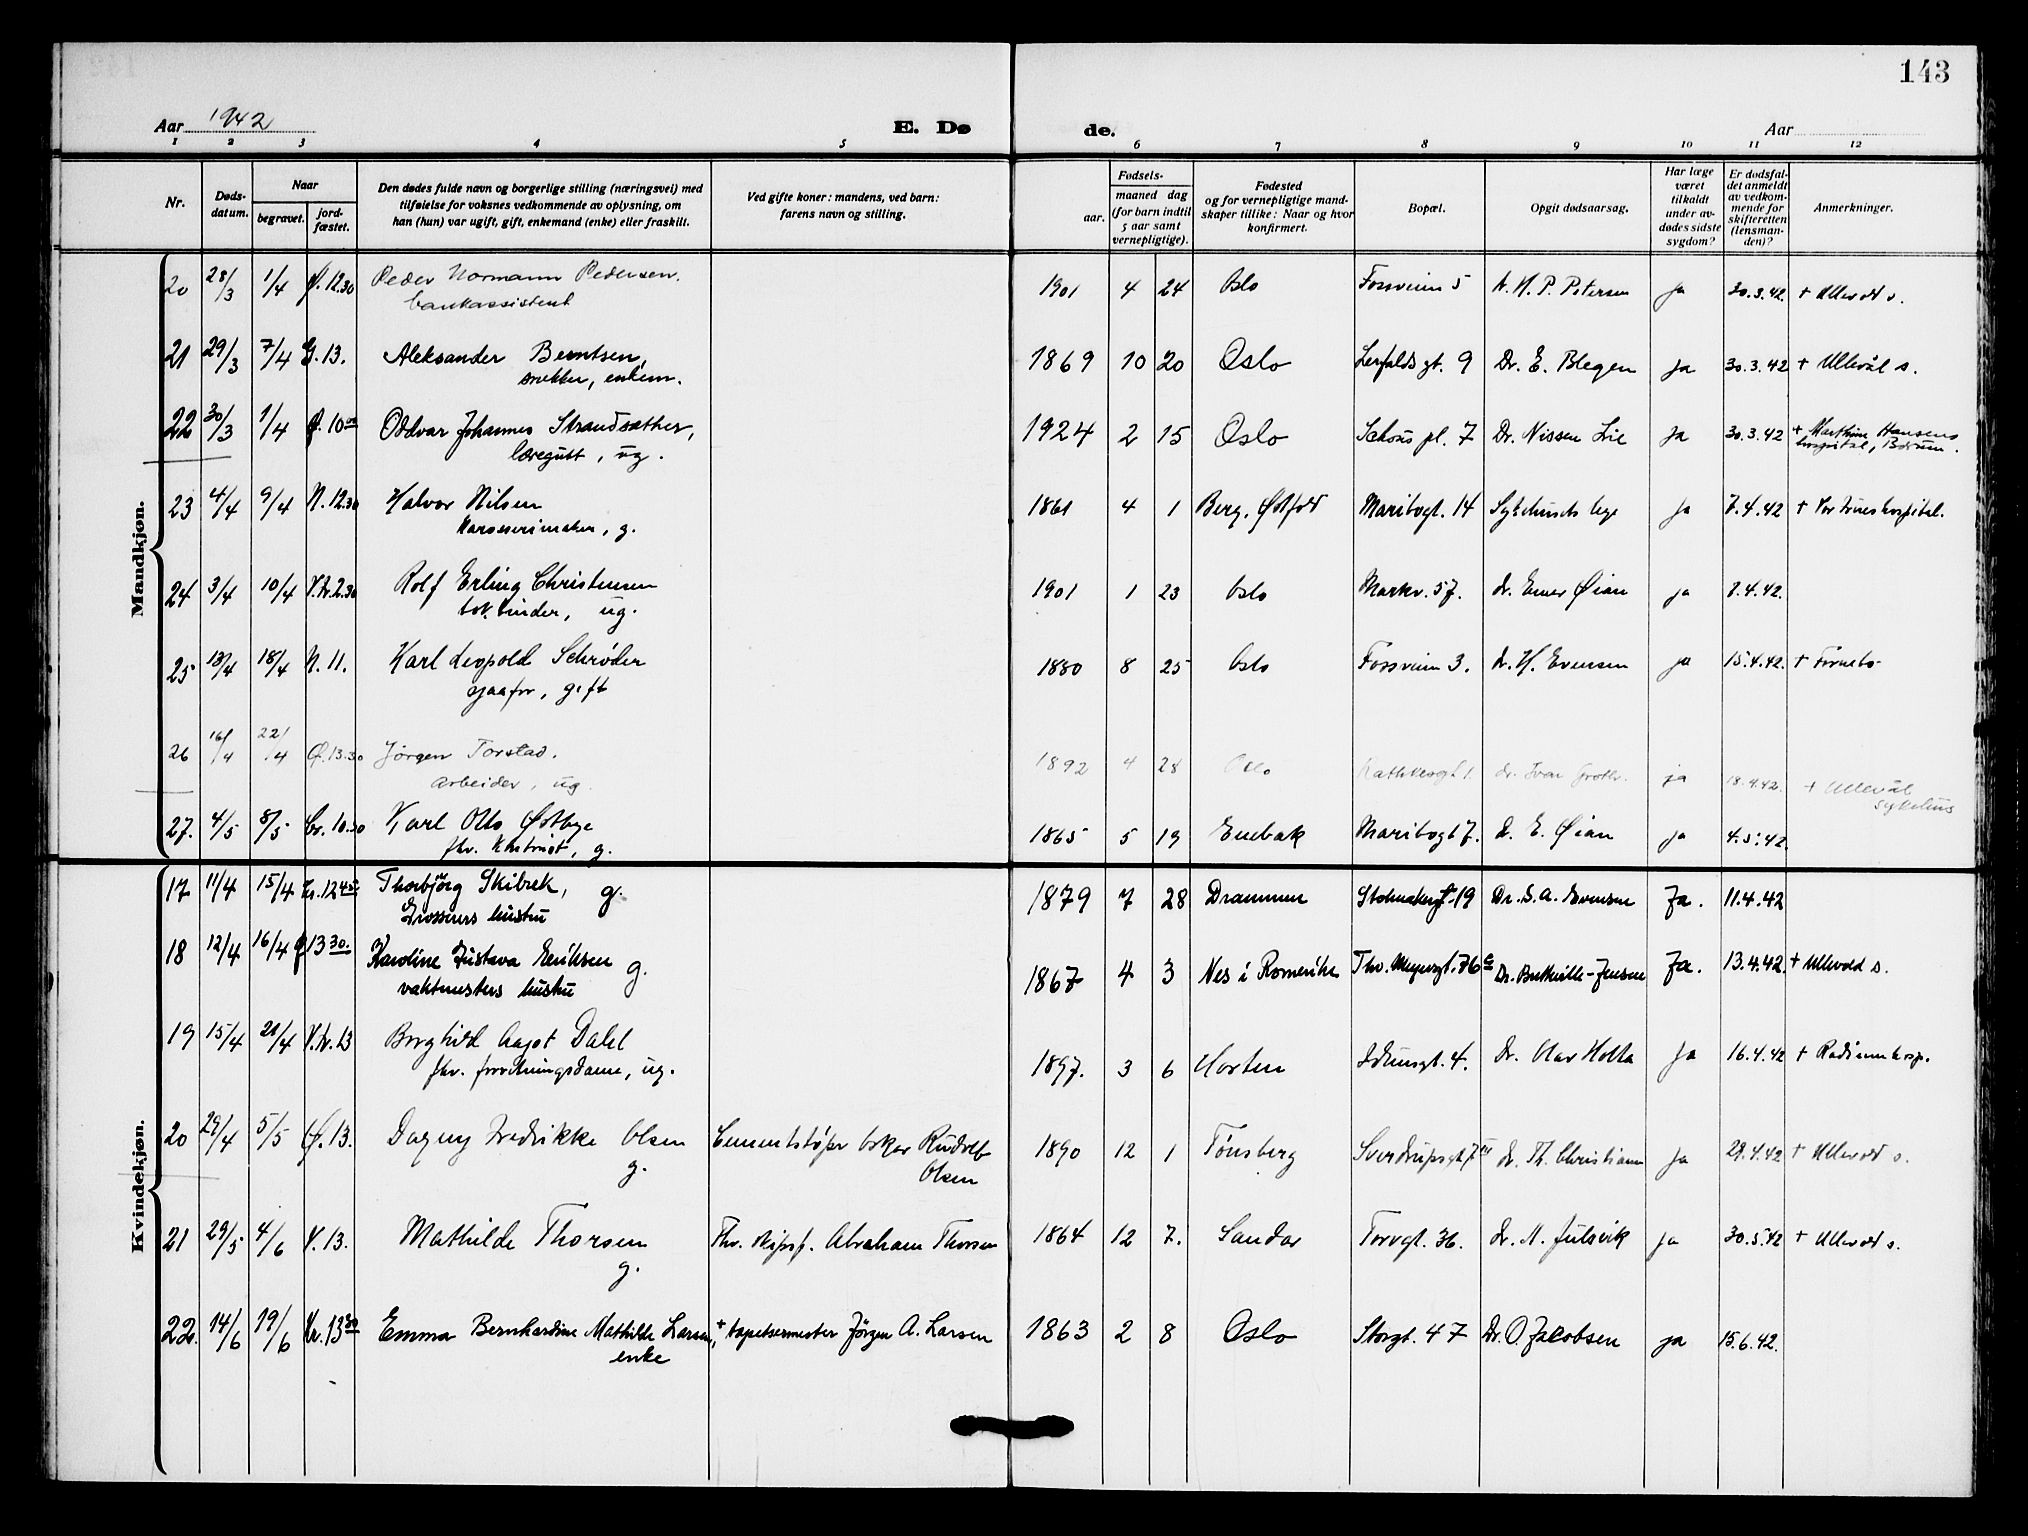 143
Aar 1942
E. Dø
de.
Aar
1 2 3 4 5 6 7 8 9 10 11 12
Nr.
Døds-
datum.
Naar
begravet.
jord-
fæstet.
Den dødes fulde navn og borgerlige stilling (næringsvei) med
tilføielse for voksnes vedkommende av oplysning, om
han (hun) var ugift, gift, enkemand (enke) eller fraskilt.
Ved gifte koner: mandens, ved barn:
farens navn og stilling.
Fødsels-
aar.
maaned dag
(for barn indtil
5 aar samt
vernepligtige).
Fødested
og for vernepligtige mand-
skaper tillike: Naar og hvor
konfirmert.
Bopæl.
Opgit dødsaarsag.
Har læge
været
tilkaldt
under av-
dødes sidste
sygdom?
Er dødsfal-
det anmeldt
av vedkom-
mende for
skifteretten
(lensman-
den)?
Anmerkninger.
Mandkjøn.
20 28/3 1/4 Ø. 12.30 Peder Normann Pedersen. 1901 4 24 Oslo Fossveien 5 H. P. Petersen ja 30.3.42. + Ullevål s.
bankassistent
21 29/3 7/4 G. 13. Aleksander Berntsen, 1869 10 20 Oslo Lerfaldsgt. 9 Dr. E. Blegen ja 30.3.42 + Ullevål s.
snekker, enkem.
22 30/3 1/4 Ø. 10 00 Oddvar Johannes Strandsæther, 1924 2 15 Oslo Schous pl. 7 Dr. Nissen Lie ja 30.3.42 + Marthine Hansens
læregutt, ug. hospital, Bærum.
23 4/4 9/4 N. 12.30 Halvor Nilsen 1861 4 1 Berg, Østfold Maribogt. 14 Sykehusets lege ja 7.4.42 + Vor Frues hospital.
Karosserimaker, g.
24 3/4 10/4 V.kr. 2.30 Rolf Erling Christensen 1901 1 23 Oslo Markv. 57. dr. Einer Øian ja 7.4.42.
bokbinder, ug.
25 13/4 18/4 N. 11. Karl Leopold Schrøder 1880 8 25 Oslo Fossveien 3. dr. H. Evensen ja 15.4.42. + Fornebo
sjaafør, gift
26 16/4 22/4 Ø. 13.30 Jörgen Torstad. 1892 4 28 Oslo Rathkesgt 1. dr. Ivar ja 18.4.42. + Ullevål
arbeider, ug. sykehus
27. 4/5 8/5 Kr. 10.30 Karl Otto Østbye 1865 5 19 Enebak Maribogt 7. D. E. Øian ja 4.5.42.
fhv. , g.
Kvindekjøn.
17 11/4 15/4 Kr. 12 45. Thorbjörg Skibrek, g. 1879 7 28 Drammen 19 Dr. S. A. Evensen Ja. 11.4.42
Grosserers hustru
18 12/4 16/4 Ø 13 30. Karoline Gustava Eriksen g. 1867 4 3 Nes i Romerike Thv. Meyersgt. 76 Dr. -Jensen Ja. 13.4.42. + Ullevold s.
vaktmesters hustru
19 15/4 21/4 V.kr. 13 Borghild Aagot Dahl 1897. 3 6 Horten Idunsgt. 4. Dr. Olav Holta Ja 16.4.42 + Radiumhosp.
fhv. forretningsdame, ug.
20 29/4 5/5 Ø. 13. Dagny Fredrikke Olsen Cementstøper Oskar Rudolf 1890 12 1 Tönsberg Sverdrupsgt 7 III dr. Th. Christiansen ja 29.4.42 + Ullevold s.
g. Olsen
21 29/5 4/6 V. 13. Mathilde Thorsen Fhv. skipsf. Abraham Thorsen 1864 12 7. Sandar Torvgt. 36. dr. N. Julsvik ja 30.5.42 + Ullevold s.
g.
22. 14/6 19/6 Kr. 13 30 Emma Bernhardine Mathilde Larsen, + tapetsermester Jörgen A. Larsen 1863 2 8 Oslo Storgt. 47 Dr. O. Jacobsen ja 15.6.42.
enke